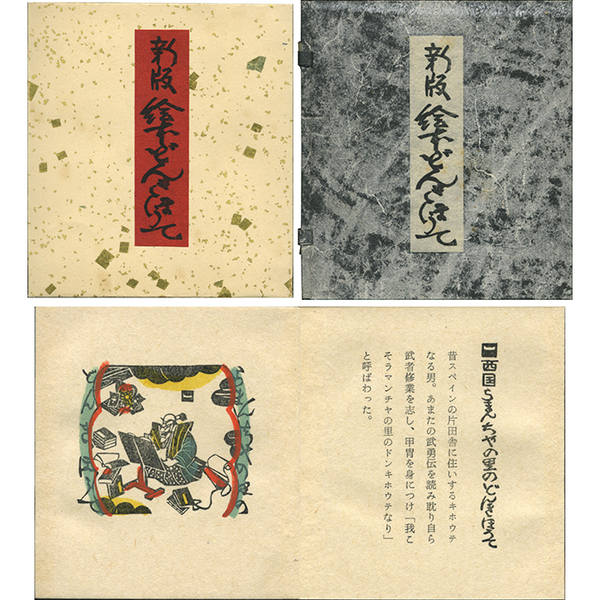 新版 絵本どんきほうて
新版 絵本どんきほうて
一 西国らまんちやの里のどんきほうて
昔スペインの片田舎に住いするキホウテ
なる男。あまたの武勇伝を読み耽り自ら
武者修業を志し、甲冑を身につけ「我こ
そラマンチャの里のドンキホウテなり」
と呼ばわった。